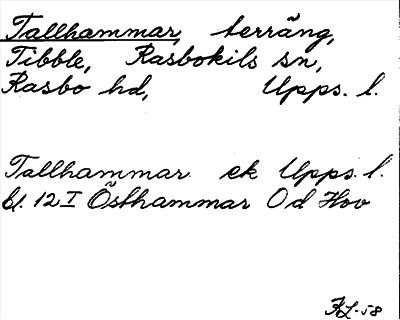 Tallhammar, terräng,
Tibble, Rasbokils sn,
Rasbo hd, Upps. l.
Tallhammar ek Upps. l.
bl. 12 I Östhammar Od Hov
KL-58